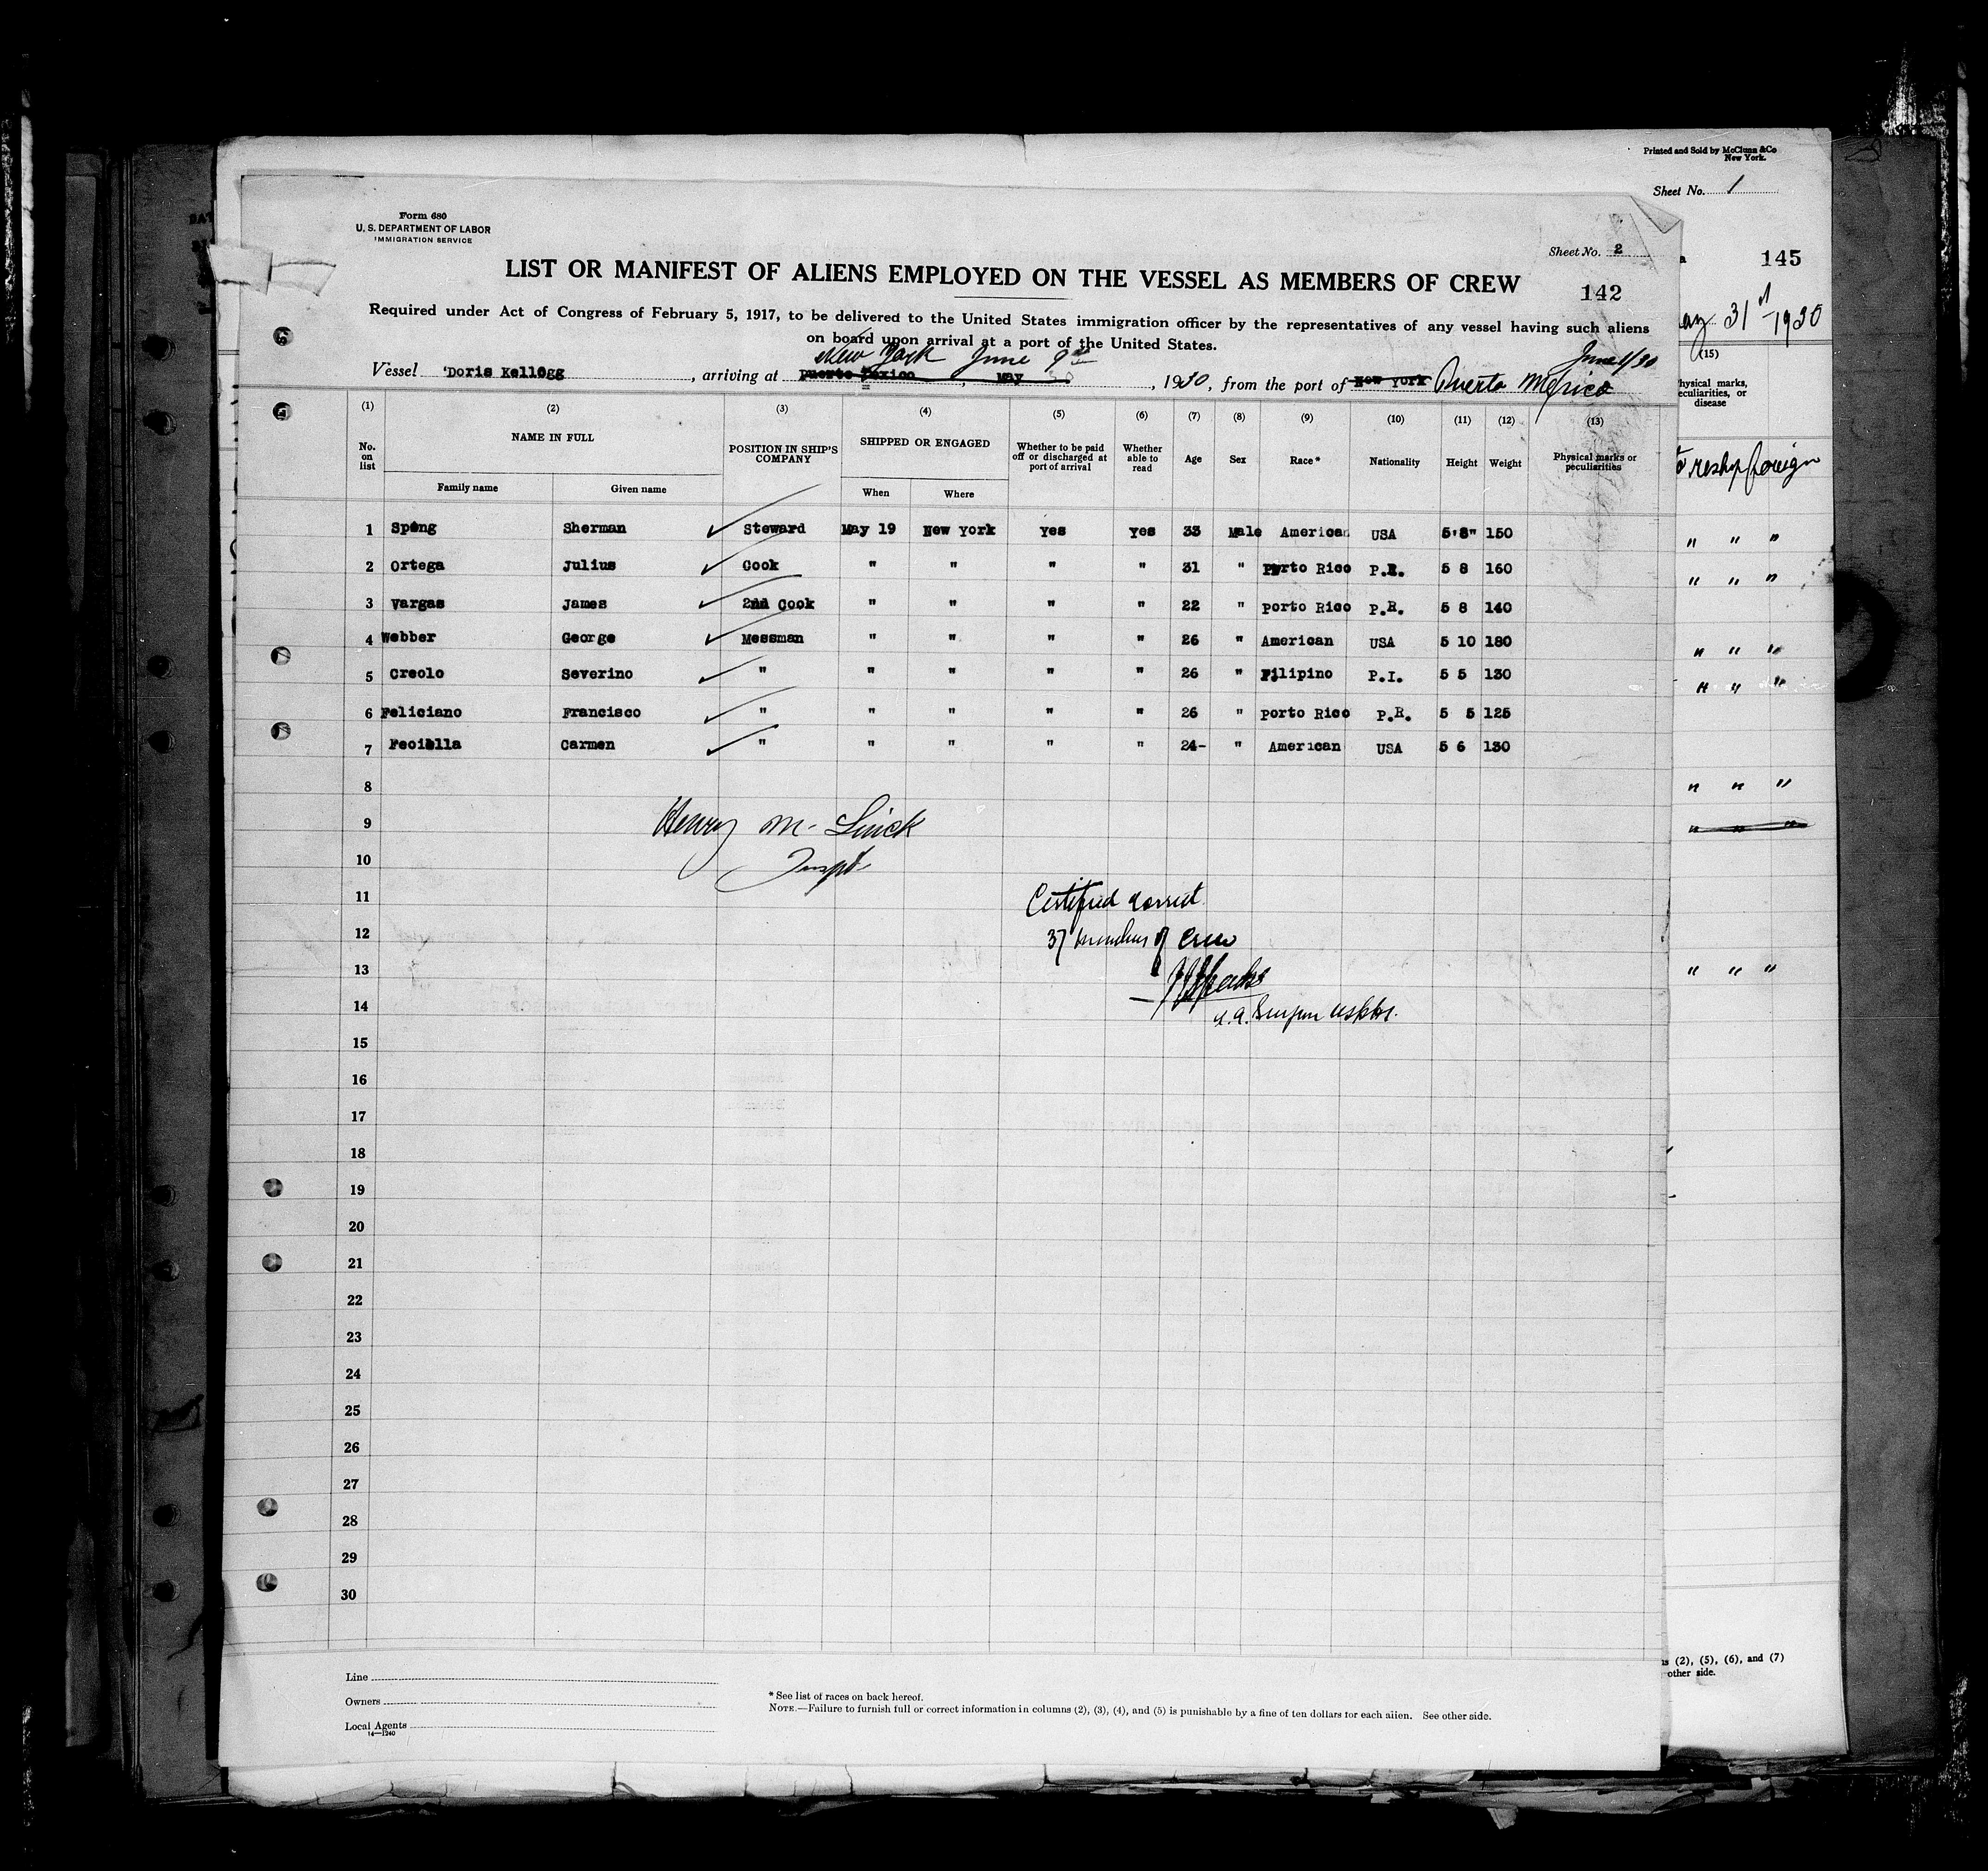 Printed and Sold by McClunn & Co
New York.
Sheet No. 1
145
31st 1930
(15)
Physical marks,
peculiarities, or
disease
reship foreign
" " "
" " "
" " "
" " "
" " "
" " "
" " "
s (2), (5), (6), and (7)
other side.
Form 680
U. S. DEPARTMENT OF LABOR
IMMIGRATION SERVICE
Sheet No. 2
LIST OR MANIFEST OF ALIENS EMPLOYED ON THE VESSEL AS MEMBERS OF CREW
142
Required under Act of Congress of February 5, 1917, to be delivered to the United States immigration officer by the representatives of any vessel having such aliens
on board upon arrival at a port of the United States.
New York June 9th June 1/30
Vessel 'Doris Kellogg, arriving at Puerto Mexico, May 30, 1930, from the port of New York Puerto Mexico
(1) (2) (3) (4) (5) (6) (7) (8) (9) (10) (11) (12) (13)
No. on list NAME IN FULL POSITION IN SHIP'S COMPANY SHIPPED OR ENGAGED Whether to be paid off or discharged at port of arrival Whether able to read Age Sex Race* Nationality Height Weight Physical marks or peculiarities
Family name Given name When Where
1 Speng Sherman Steward May 19 New York Yes Yes 33 Male American USA 5'8" 150
2 Ortega Julius Cook " " " " 31 " Porto Rico P.R. 5 8 160
3 Vargas James 2nd Cook " " " " 22 " Porto Rico P.R. 5 8 140
4 Webber George Messman " " " " 26 " American USA 5 10 180
5 Creolo Severino " " " " " 26 " Filipino P.I. 5 5 130
6 Feliciano Francisco " " " " " 26 " Porto Rico P.R. 5 5 125
7 Feciella Carmen " " " " " 24- " American USA 5 6 130
8
9
10
11
12
13
14
15
16
17
18
19
20
21
22
23
24
25
26
27
28
29
30
Henry M. Linck
Inspt
Certified correct
37 members of crew
A.A. Surgeon USPHS.
Line
Owners
Local Agents
14—1240
* See list of races on back hereof.
NOTE.—Failure to furnish full or correct information in columns (2), (3), (4), and (5) is punishable by a fine of ten dollars for each alien. See other side.